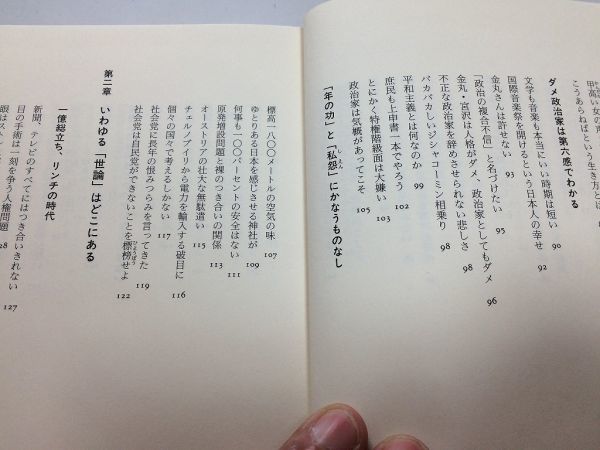 甲高い女の声
こうあらねばという生き方とは
ダメ政治家は第六感でわかる
文学も音楽も本当にいい時期は短い 90
国際音楽祭を開けるという日本人の幸せ 92
金丸さんは許せない 93
「政治の複合不信」と名づけたい 95
金丸・宮沢は人格がダメ、政治家としてもダメ 96
不正な政治家を辞めさせられない悲しさ 98
バカバカしいシャコーミン相乗り 98
平和主義とは何なのか 99
庶民も上申書一本でやろう 102
とにかく特権階級面は大嫌い 103
政治家は気概があってこそ 105
「年の功」と「私怨」にかなうものなし
しえん
標高一八〇〇メートルの空気の味 107
ゆとりある日本を感じさせる神社が 109
何事も一〇〇パーセントの安全はない 111
原発増設問題と裸のつき合いの関係 113
オーストリアの壮大な無駄遣い 115
チェルノブイリから電力を輸入する破目に 116
個々の国々で考えるしかない 117
社会党に長年の恨みつらみを言ってきた 119
社会党は自民党ができないことを標榜せよ 122
ひょうぼう
第二章 いわゆる「世論」はどこにある
一億総立ち、リンチの時代
新聞、テレビのすべてにはつき合いきれない 127
目の手術は一刻を争う人権問題 128